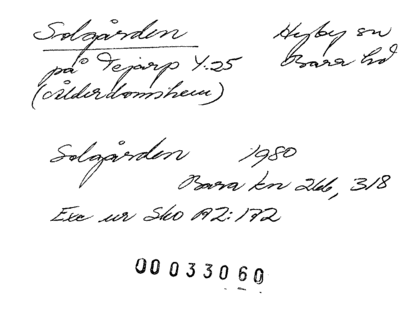 Solgården Hyby sn
på Tejarp 4:25 Bara hd
(Ålderdomshem)
Solgården 1980
Bara kn 266, 318
Exc ur Sko A2:172
00033060